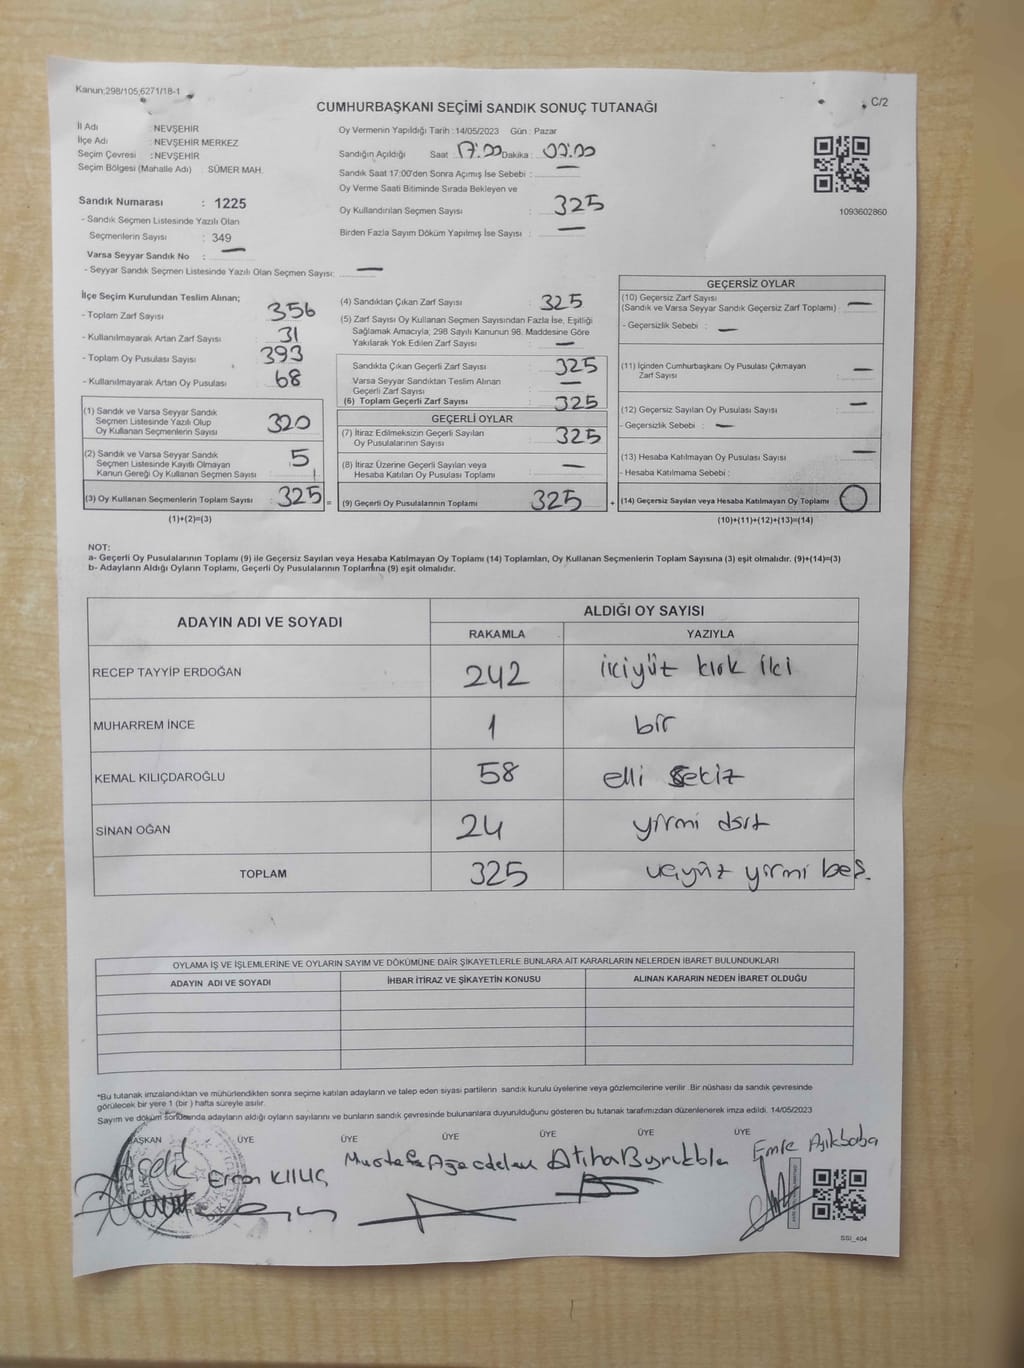 Kanun:298/105,6271/18-1
C/2
CUMHURBAŞKANI SEÇİMİ SANDIK SONUÇ TUTANAĞI
İl Adı : NEVŞEHİR
İlçe Adı : NEVŞEHİR MERKEZ
Seçim Çevresi : NEVŞEHİR
Seçim Bölgesi (Mahalle Adı) : SÜMER MAH.
Sandık Numarası : 1225
- Sandık Seçmen Listesinde Yazılı Olan
Seçmenlerin Sayısı : 349
Varsa Seyyar Sandık No : —
- Seyyar Sandık Seçmen Listesinde Yazılı Olan Seçmen Sayısı: —
Oy Vermenin Yapıldığı Tarih : 14/05/2023 Gün : Pazar
Sandığın Açıldığı Saat 17:00 Dakika : 00:00
Sandık Saat 17:00'den Sonra Açımış İse Sebebi : —
Oy Verme Saati Bitiminde Sırada Bekleyen ve
Oy Kullandırılan Seçmen Sayısı : 325
Birden Fazla Sayım Döküm Yapılmış İse Sayısı : —
1093602860
İlçe Seçim Kurulundan Teslim Alınan;
- Toplam Zarf Sayısı : 356
- Kullanılmayarak Artan Zarf Sayısı : 31
- Toplam Oy Pusulası Sayısı : 393
- Kullanılmayarak Artan Oy Pusulası : 68
(1) Sandık ve Varsa Seyyar Sandık
Seçmen Listesinde Yazılı Olup
Oy Kullanan Seçmenlerin Sayısı : 320
(2) Sandık ve Varsa Seyyar Sandık
Seçmen Listesinde Kayıtlı Olmayan
Kanun Gereği Oy Kullanan Seçmen Sayısı : 5
(3) Oy Kullanan Seçmenlerin Toplam Sayısı : 325 =
(1)+(2)=(3)
(4) Sandıktan Çıkan Zarf Sayısı : 325
(5) Zarf Sayısı Oy Kullanan Seçmen Sayısından Fazla İse, Eşitliği
Sağlamak Amacıyla; 298 Sayılı Kanunun 98. Maddesine Göre
Yakılarak Yok Edilen Zarf Sayısı : —
Sandıkta Çıkan Geçerli Zarf Sayısı : 325
Varsa Seyyar Sandıktan Teslim Alınan
Geçerli Zarf Sayısı : —
(6) Toplam Geçerli Zarf Sayısı : 325
GEÇERLİ OYLAR
(7) İtiraz Edilmeksizin Geçerli Sayılan
Oy Pusulalarının Sayısı : 325
(8) İtiraz Üzerine Geçerli Sayılan veya
Hesaba Katılan Oy Pusulası Toplamı : —
(9) Geçerli Oy Pusulalarının Toplamı 325 +
GEÇERSİZ OYLAR
(10) Geçersiz Zarf Sayısı
(Sandık ve Varsa Seyyar Sandık Geçersiz Zarf Toplamı) : —
- Geçersizlik Sebebi : —
(11) İçinden Cumhurbaşkanı Oy Pusulası Çıkmayan
Zarf Sayısı : —
(12) Geçersiz Sayılan Oy Pusulası Sayısı : —
- Geçersizlik Sebebi : —
(13) Hesaba Katılmayan Oy Pusulası Sayısı : —
- Hesaba Katılmama Sebebi :
(14) Geçersiz Sayılan veya Hesaba Katılmayan Oy Toplamı : 0
(10)+(11)+(12)+(13)=(14)
NOT:
a- Geçerli Oy Pusulalarının Toplamı (9) ile Geçersiz Sayılan veya Hesaba Katılmayan Oy Toplamı (14) Toplamları, Oy Kullanan Seçmenlerin Toplam Sayısına (3) eşit olmalıdır. (9)+(14)=(3)
b- Adayların Aldığı Oyların Toplamı, Geçerli Oy Pusulalarının Toplamına (9) eşit olmalıdır.
ADAYIN ADI VE SOYADI
ALDIĞI OY SAYISI
RAKAMLA YAZIYLA
RECEP TAYYİP ERDOĞAN 242 ikiyüz kırk iki
MUHARREM İNCE 1 bir
KEMAL KILIÇDAROĞLU 58 elli sekiz
SİNAN OĞAN 24 yirmi dört
TOPLAM 325 üçyüz yirmi beş.
OYLAMA İŞ VE İŞLEMLERİNE VE OYLARIN SAYIM VE DÖKÜMÜNE DAİR ŞİKAYETLERLE BUNLARA AİT KARARLARIN NELERDEN İBARET BULUNDUKLARI
ADAYIN ADI VE SOYADI İHBAR İTİRAZ VE ŞİKAYETİN KONUSU ALINAN KARARIN NEDEN İBARET OLDUĞU
*Bu tutanak imzalandıktan ve mühürlendikten sonra seçime katılan adayların ve talep eden siyasi partilerin sandık kurulu üyelerine veya gözlemcilerine verilir. Bir nüshası da sandık çevresinde
görülecek bir yere 1 (bir ) hafta süreyle asılır.
Sayım ve döküm sonusunda adayların aldığı oyların sayılarını ve bunların sandık çevresinde bulunanlara duyurulduğunu gösteren bu tutanak tarafımızdan düzenlenerek imza edildi. 14/05/2023
BAŞKAN ÜYE ÜYE ÜYE ÜYE ÜYE ÜYE
Emre Aşıkbaba
SSI_404